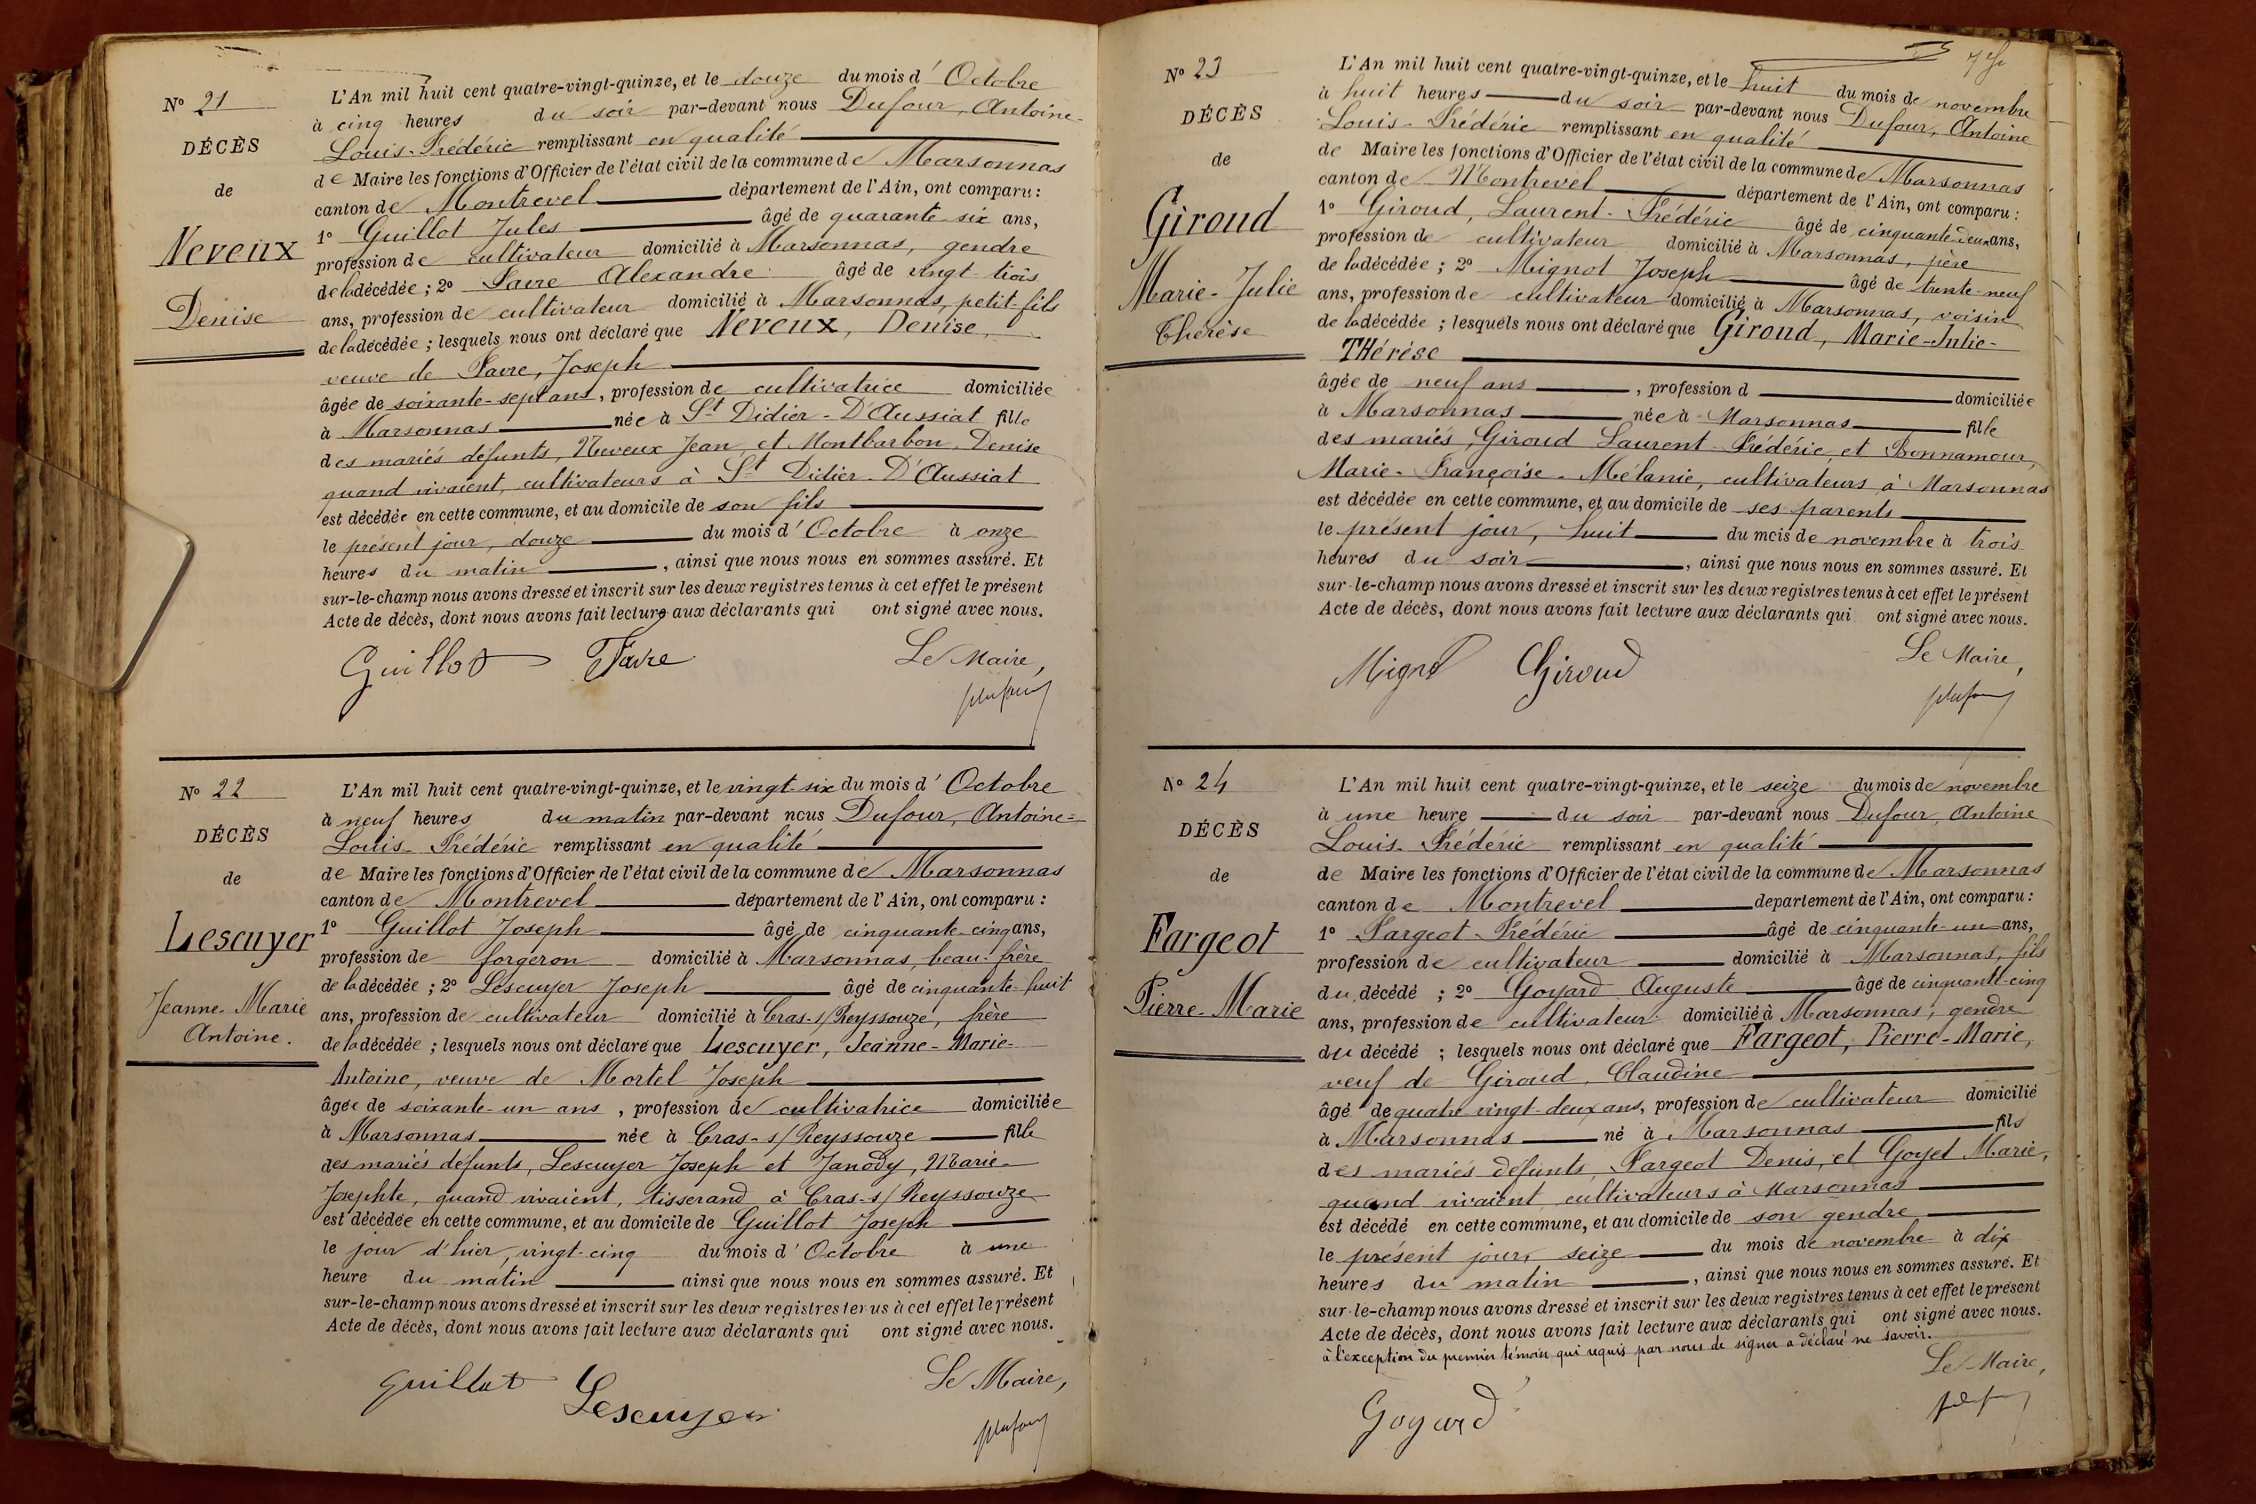 N° 21
DÉCÈS
de
Neveux
Denise
L'An mil huit cent quatre-vingt-quinze, et le douze du mois d'Octobre
à cinq heures du soir par-devant nous Dufour, Antoine-
Louis-Frédéric remplissant en qualité
de Maire les fonctions d'Officier de l'état civil de la commune de Marsonnas
canton de Montrevel département de l'Ain, ont comparu :
1° Guillot Jules âgé de quarante-six ans,
profession de cultivateur domicilié à Marsonnas, gendre
de la décédée ; 2° Favre Alexandre âgé de vingt-trois
ans, profession de cultivateur domicilié à Marsonnas, petit-fils
de la décédée ; lesquels nous ont déclaré que Neveux, Denise,
veuve de Favre, Joseph
âgée de soixante-sept ans, profession de cultivatrice domiciliée
à Marsonnas née à St Didier-D'Aussiat fille
des mariés défunts, Neveux Jean, et Montbarbon, Denise
quand vivaient, cultivateurs à St Didier-D'Aussiat
est décédée en cette commune, et au domicile de son fils
le présent jour, douze du mois d'Octobre à onze
heures du matin, ainsi que nous nous en sommes assuré. Et
sur-le-champ nous avons dressé et inscrit sur les deux registres tenus à cet effet le présent
Acte de décès, dont nous avons fait lecture aux déclarants qui ont signé avec nous.
Guillot Favre Le Maire,
Dufour
N° 22
DÉCÈS
de
Lescuyer
Jeanne-Marie
Antoine.
L'An mil huit cent quatre-vingt-quinze, et le vingt-six du mois d'Octobre
à neuf heures du matin par-devant nous Dufour, Antoine-
Louis-Frédéric remplissant en qualité
de Maire les fonctions d'Officier de l'état civil de la commune de Marsonnas
canton de Montrevel département de l'Ain, ont comparu :
1° Guillot Joseph âgé de cinquante-cinq ans,
profession de forgeron domicilié à Marsonnas, beau-frère
de la décédée ; 2° Lescuyer Joseph âgé de cinquante-huit
ans, profession de cultivateur domicilié à Cras-s/Reyssouze, frère
de la décédée ; lesquels nous ont déclaré que Lescuyer, Jeanne-Marie-
Antoine, veuve de Mortel Joseph
âgée de soixante-un ans, profession de cultivatrice domiciliée
à Marsonnas née à Cras-s/Reyssouze fille
des mariés défunts, Lescuyer Joseph et Janody, Marie-
Josephte, quand vivaient, tisserand à Cras-s/Reyssouze
est décédée en cette commune, et au domicile de Guillot Joseph
le jour d'hier, vingt-cinq du mois d'Octobre à une
heure du matin ainsi que nous nous en sommes assuré. Et
sur-le-champ nous avons dressé et inscrit sur les deux registres tenus à cet effet le présent
Acte de décès, dont nous avons fait lecture aux déclarants qui ont signé avec nous.
Guillot Lescuyer Le Maire,
Dufour
N° 23
DÉCÈS
de
Giroud
Marie-Julie
Thérèse
L'An mil huit cent quatre-vingt-quinze, et le huit du mois de novembre
à huit heures du soir par-devant nous Dufour, Antoine
Louis-Frédéric remplissant en qualité
de Maire les fonctions d'Officier de l'état civil de la commune de Marsonnas
canton de Montrevel département de l'Ain, ont comparu :
1° Giroud, Laurent-Frédéric âgé de cinquante-deux ans,
profession de cultivateur domicilié à Marsonnas, père
de la décédée ; 2° Mignot Joseph âgé de trente-neuf
ans, profession de cultivateur domicilié à Marsonnas, voisin
de la décédée ; lesquels nous ont déclaré que Giroud, Marie-Julie-
THérèse
âgée de neuf ans, profession d domiciliée
à Marsonnas née à Marsonnas fille
des mariés, Giroud Laurent-Frédéric, et Bonnamour,
Marie-Françoise-Mélanie, cultivateurs à Marsonnas
est décédée en cette commune, et au domicile de ses parents
le présent jour, huit du mois de novembre à trois
heures du soir, ainsi que nous nous en sommes assuré. Et
sur-le-champ nous avons dressé et inscrit sur les deux registres tenus à cet effet le présent
Acte de décès, dont nous avons fait lecture aux déclarants qui ont signé avec nous.
Mignot Giroud Le Maire,
Dufour
N° 24
DÉCÈS
de
Fargeot
Pierre-Marie
L'An mil huit cent quatre-vingt-quinze, et le seize du mois de novembre
à une heure du soir par-devant nous Dufour, Antoine
Louis-Frédéric remplissant en qualité
de Maire les fonctions d'Officier de l'état civil de la commune de Marsonnas
canton de Montrevel departement de l'Ain, ont comparu :
1° Fargeot Frédéric âgé de cinquante-un ans,
profession de cultivateur domicilié à Marsonnas, fils
du décédé ; 2° Goyard Auguste âgé de cinquante-cinq
ans, profession de cultivateur domicilié à Marsonnas, gendre
du décédé ; lesquels nous ont déclaré que Fargeot, Pierre-Marie,
veuf de Giroud, Claudine
âgé de quatre-vingt-deux ans, profession de cultivateur domicilié
à Marsonnas né à Marsonnas fils
des mariés défunts, Fargeot Denis, et Goyet Marie,
quand vivaient, cultivateurs à Marsonnas
est décédé en cette commune, et au domicile de son gendre
le présent jour, seize du mois de novembre à dix
heures du matin, ainsi que nous nous en sommes assuré. Et
sur-le-champ nous avons dressé et inscrit sur les deux registres tenus à cet effet le présent
Acte de décès, dont nous avons fait lecture aux déclarants qui ont signé avec nous.
à l'exception du premier témoin qui requis par nous de signer a déclaré ne savoir.
Le Maire,
Goyard